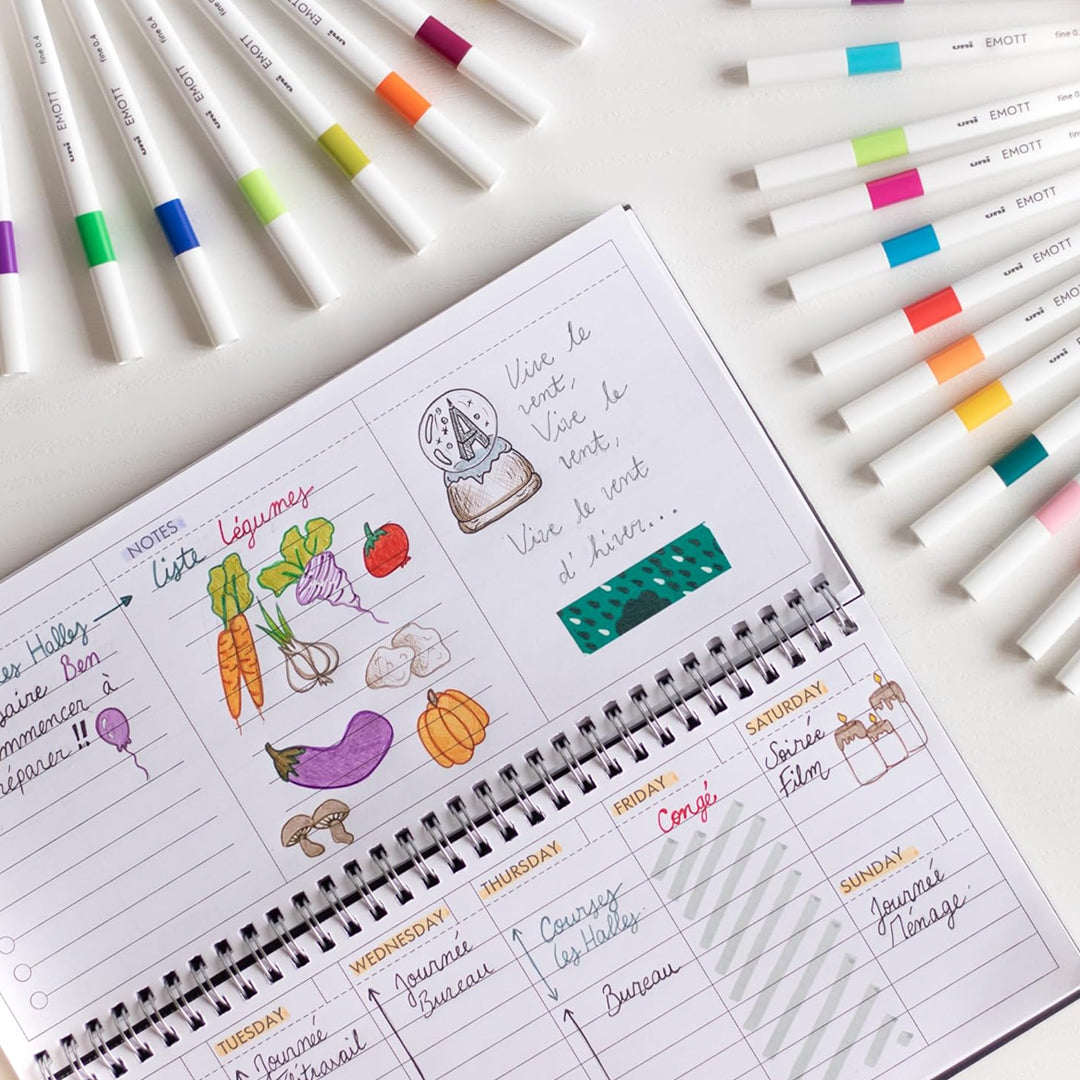 fine 0.4
EMOTT
uni
fine 0.4
EMOTT
uni
fine 0.4
EMOTT
uni
fine 0.4
EMOTT
uni
EMOTT
uni
uni EMOTT fine 0.
uni EMOTT fine 0.
uni EMOTT
uni EMOTT
uni EMOTT
uni EMOTT
uni
NOTES
Liste Légumes
Halles
Ben
à
!!
Vive le
vent,
Vive le
vent,
Vive le vent
d'hiver...
TUESDAY
Journée
WEDNESDAY
Journée
Bureau
THURSDAY
Courses
Les Halles
Bureau
FRIDAY
Congé
SATURDAY
Soirée
Film
SUNDAY
Journée
Ménage